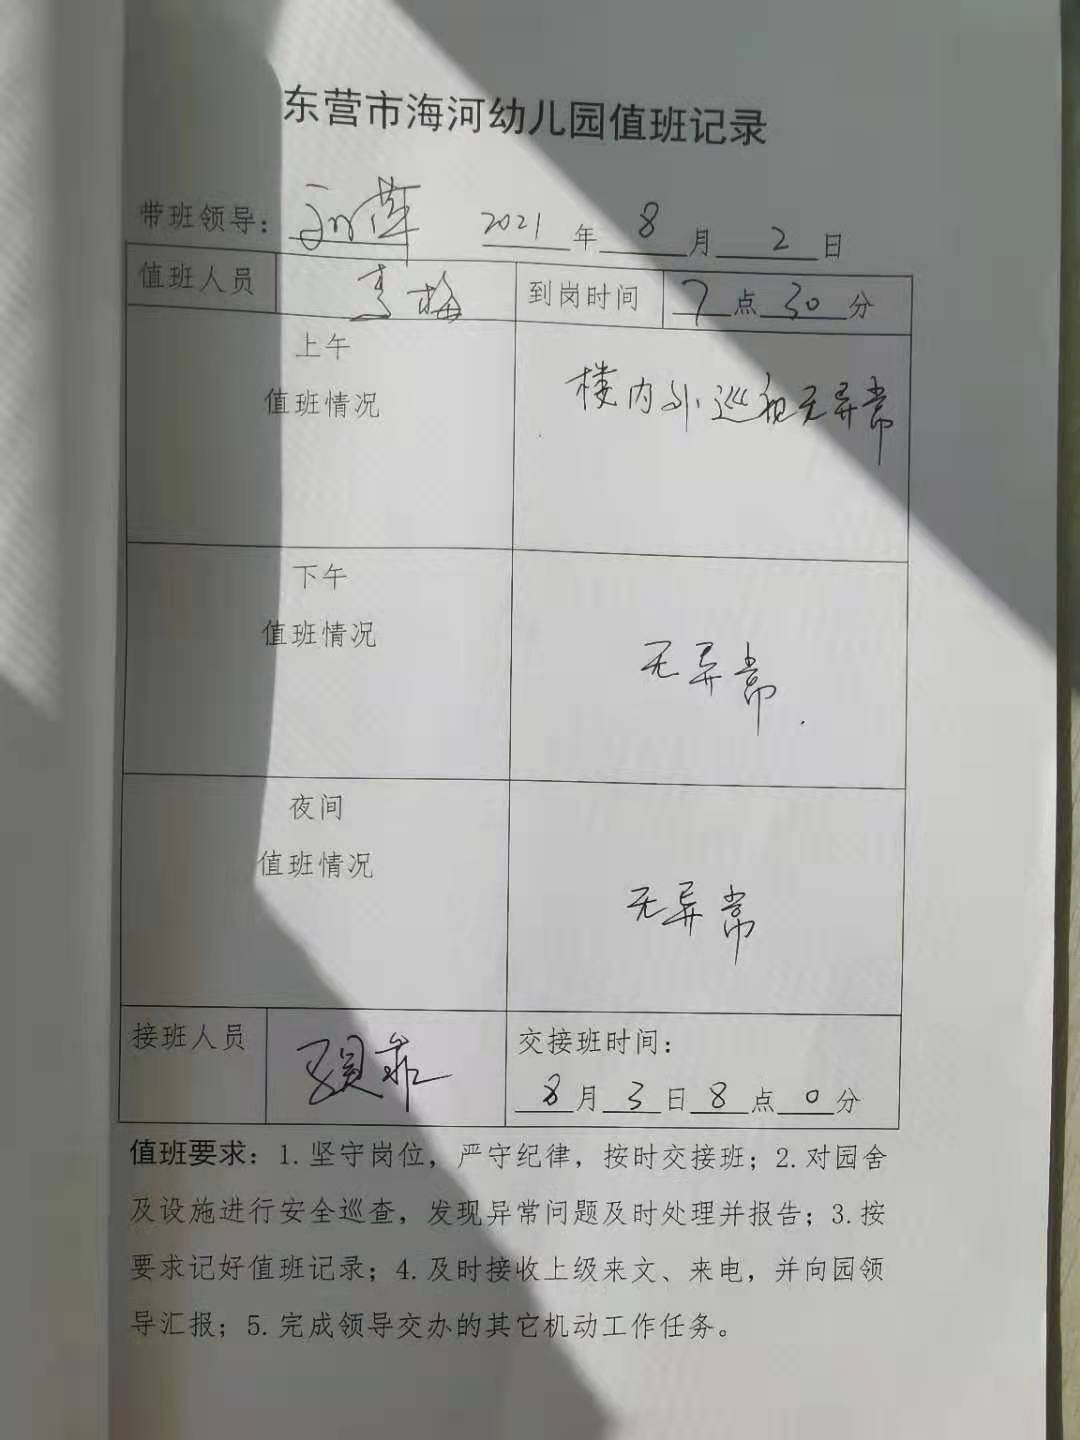 东营市海河幼儿园值班记录
带班领导：刘萍 2021年8月2日
值班人员 李梅 到岗时间 7点30分
上午
值班情况
楼内外巡视无异常
下午
值班情况
无异常.
夜间
值班情况
无异常
接班人员 交接班时间：
8月3日8点0分
值班要求：1.坚守岗位，严守纪律，按时交接班；2.对园舍
及设施进行安全巡查，发现异常问题及时处理并报告；3.按
要求记好值班记录；4.及时接收上级来文、来电，并向园领
导汇报；5.完成领导交办的其它机动工作任务。